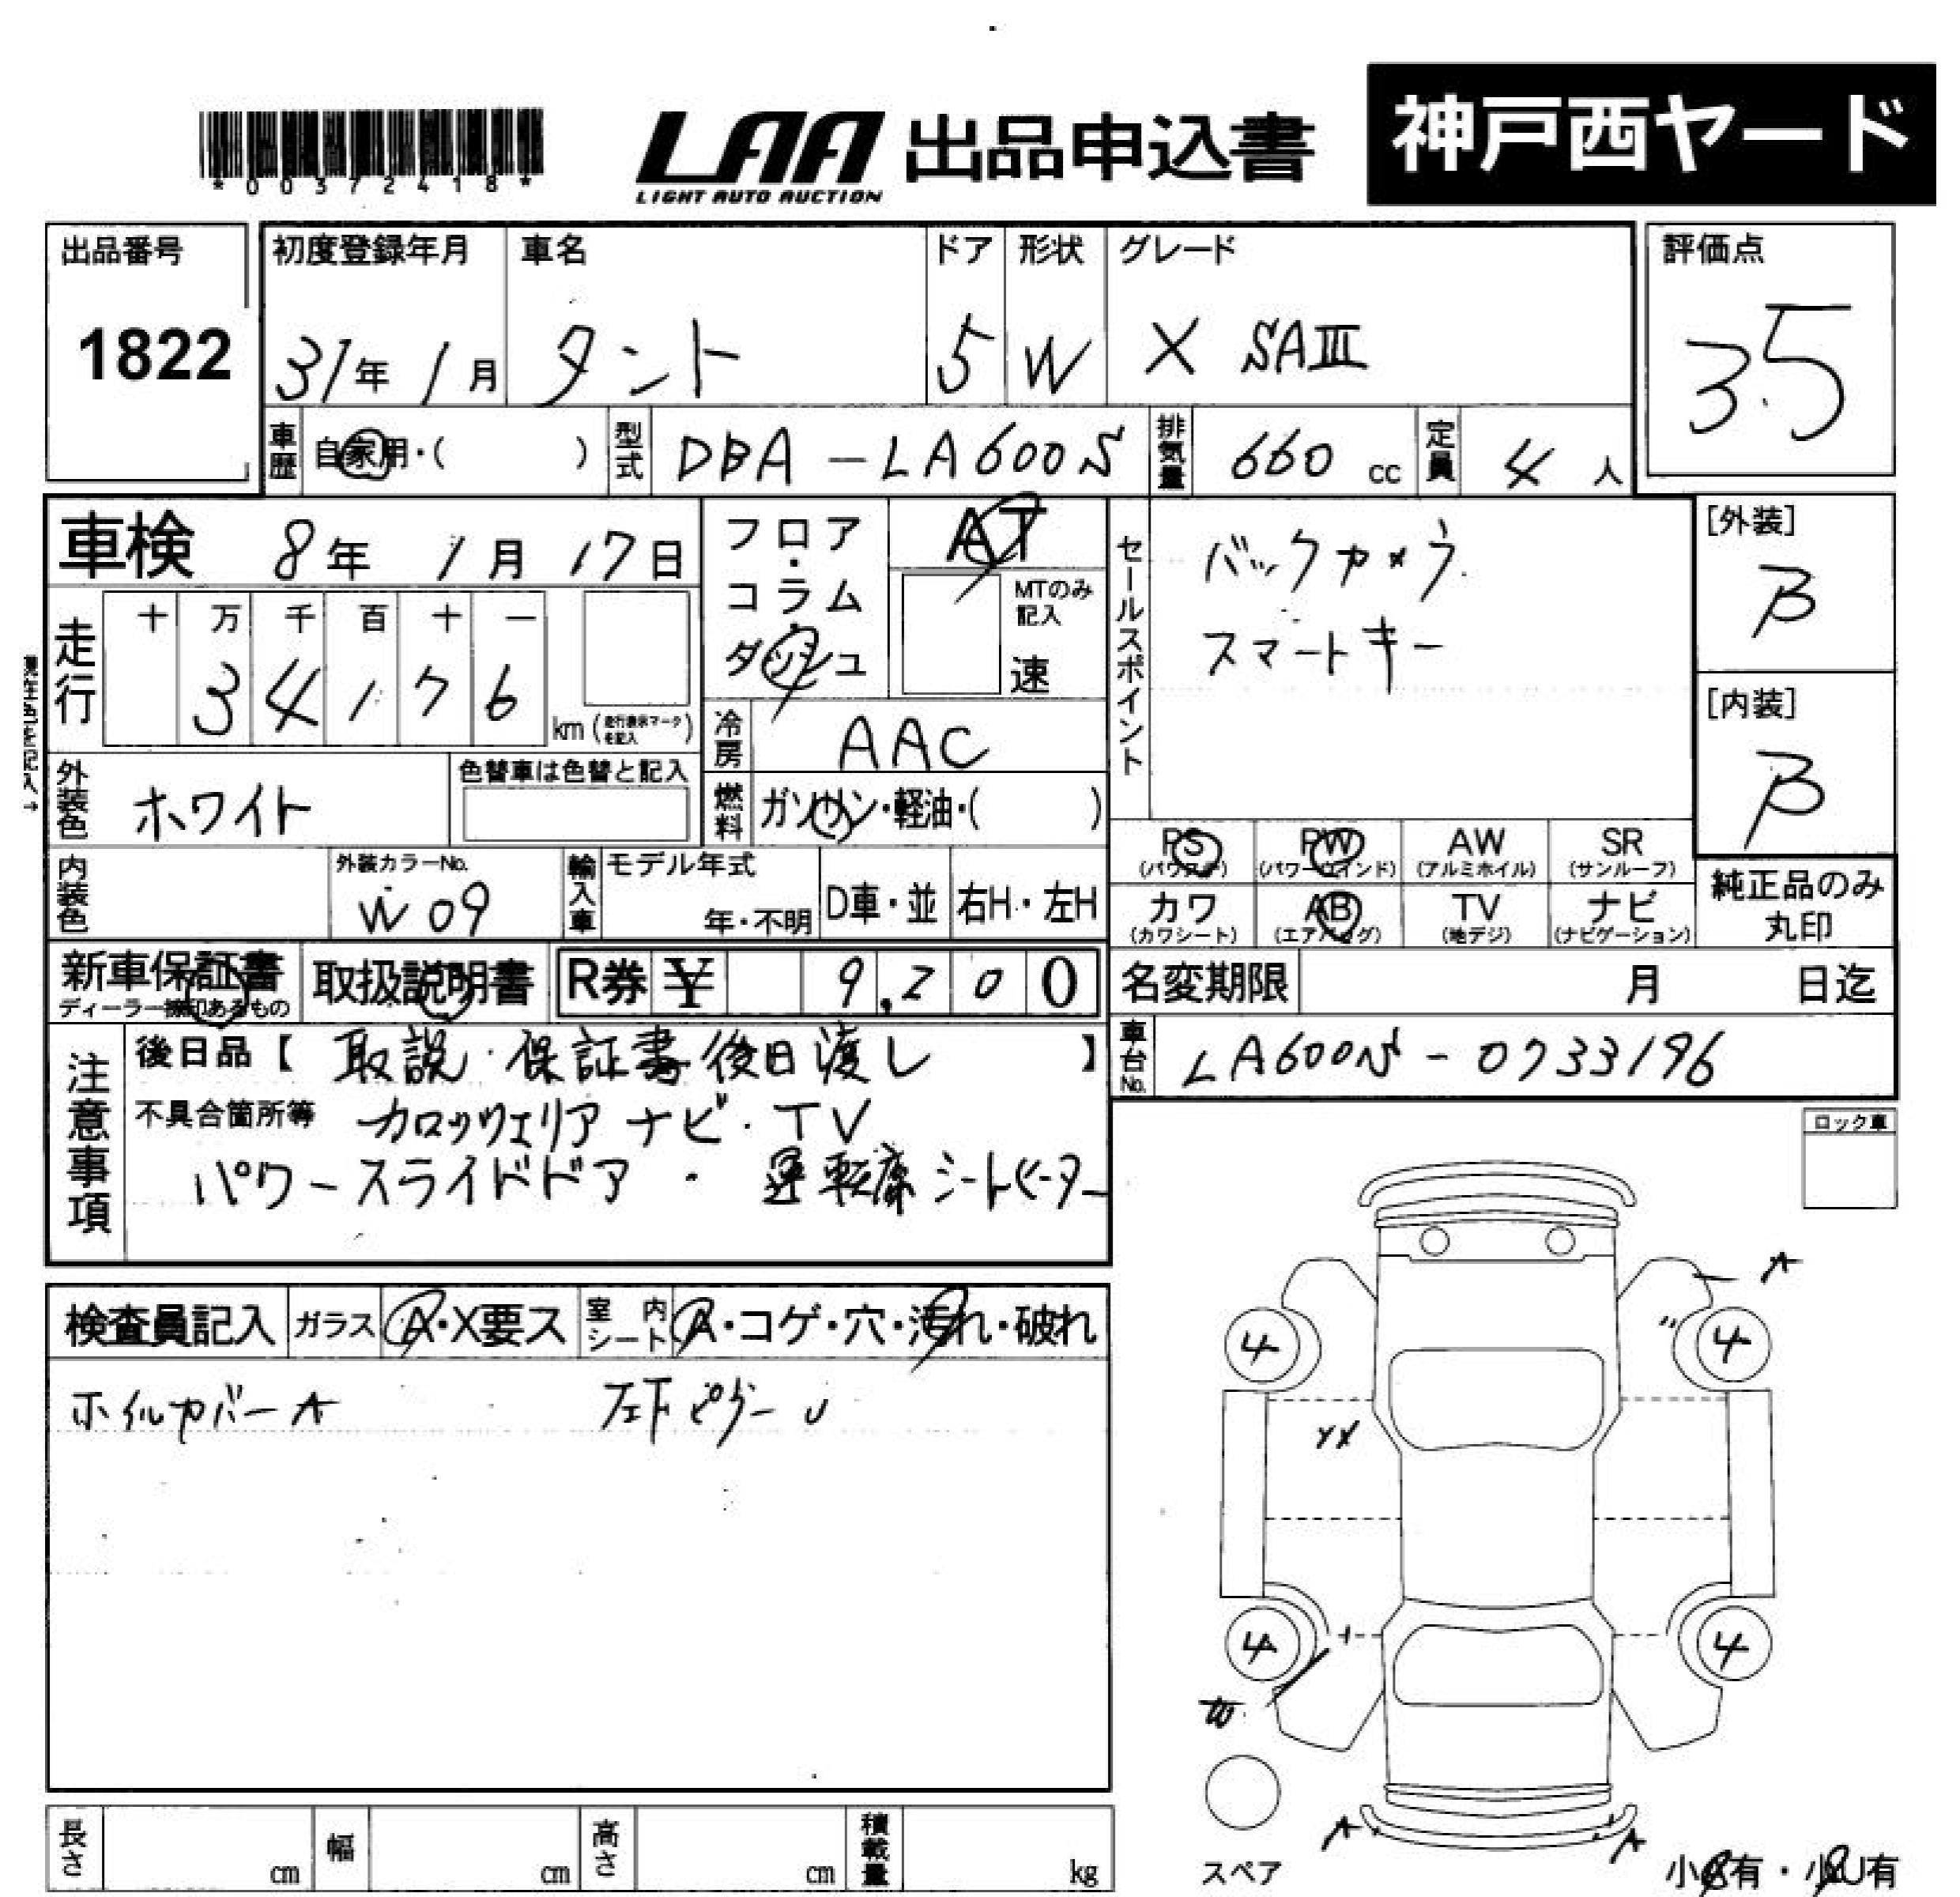 神戸西ヤード
*00372418*
LAA 出品申込書
LIGHT AUTO AUCTION
出品番号 初度登録年月 車名 ドア 形状 グレード 評価点
1822 31年 1月 タント 5 W X SAIII 3.5
車歴 自家用・( ) 型式 DBA-LA600S 排気量 660 cc 定員 4 人
車検 8年 1月 17日
フロア・コラム・ダッシュ
AT
MTのみ記入
速
セールスポイント
バックカメラ
スマートキー
[外装]
B
[内装]
B
走行 十 万 千 百 十 一
3 4 1 7 6
km (走行表示マークを記入)
冷房 AAC
外装色 ホワイト 色替車は色替と記入
燃料 ガソリン・軽油・( )
内装色 外装カラーNo. W09
輸入車 モデル年式 年・不明 D車・並 右H・左H
PS (パワステ) PW (パワーウインド) AW (アルミホイル) SR (サンルーフ)
カワ (カワシート) AB (エアバッグ) TV (地デジ) ナビ (ナビゲーション)
純正品のみ丸印
新車保証書 取扱説明書 R券 ¥ 9,200
ディーラー捺印あるもの
名変期限 月 日迄
車台No. LA600S-0733196
注意事項
後日品【 取説・保証書後日渡し 】
不具合箇所等 カロッツェリア ナビ・TV
パワースライドドア・運転席シートヒーター
ロック車
検査員記入 ガラス A・X要ス 室内シート A・コゲ・穴・汚れ・破れ
ホイルカバーA 左下ピラーU
A
〃
4 4
XX
4 4
W
A A
スペア
小
有・小U有
長さ cm 幅 cm 高さ cm 積載量 kg